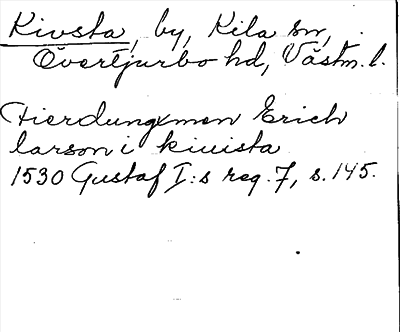 Kivsta, by, Kila sn,
Övertjurbo hd, Västm. l.
Fierdungxmen Erich
larson i kiuista
1530 Gustaf I:s reg. 7, s. 145.